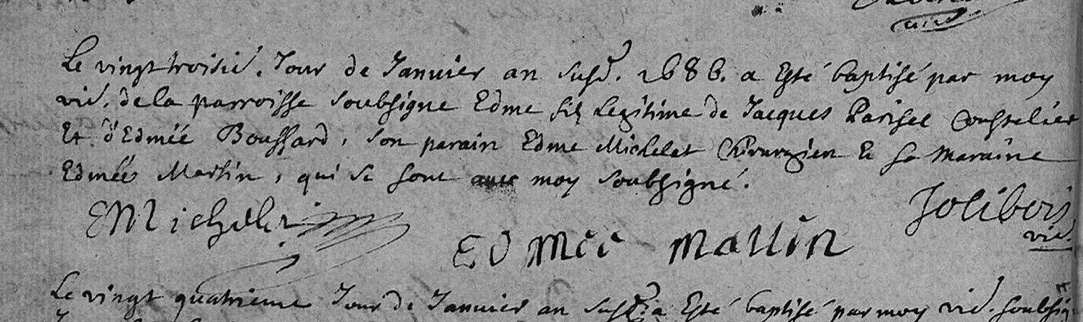 vic.
Le vingt troisié. Jour de Janvier an susd. 1686. a Esté baptisé par moy
vic. de la parroisse soubsigne Edme fils Legitime de Jacques Parisel Coustelier
Et d'Edmée Boussard, son parain Edme Michelet Chirurgien & sa Maraine
Edmée Martin, qui se sont avec moy soubsigné.
EMichelet
Jolibois
vic.
EDMee Martin
Le vingt quatrieme Jour de Janvier an susd. a Esté baptisé par moy vic. soubsig